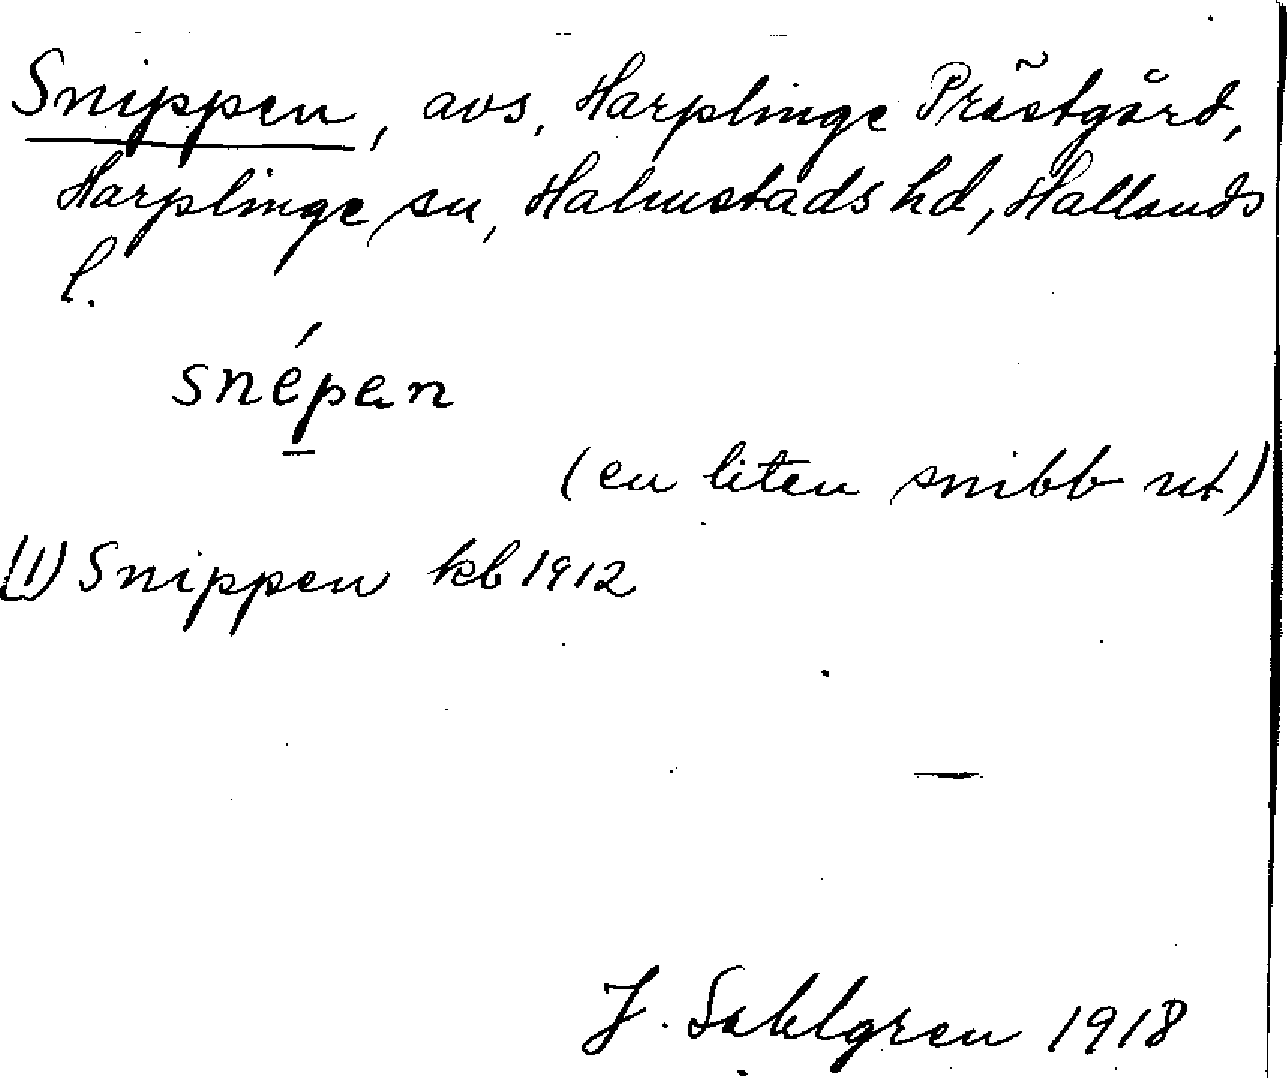 Snippen, avs. Harplinge Prästgård,
Harplinge sn, Halmstads hd, Hallands
l.
snépan
(en liten snibb ut)
(1) Snippen kb 1912
J. Sahlgren 1918